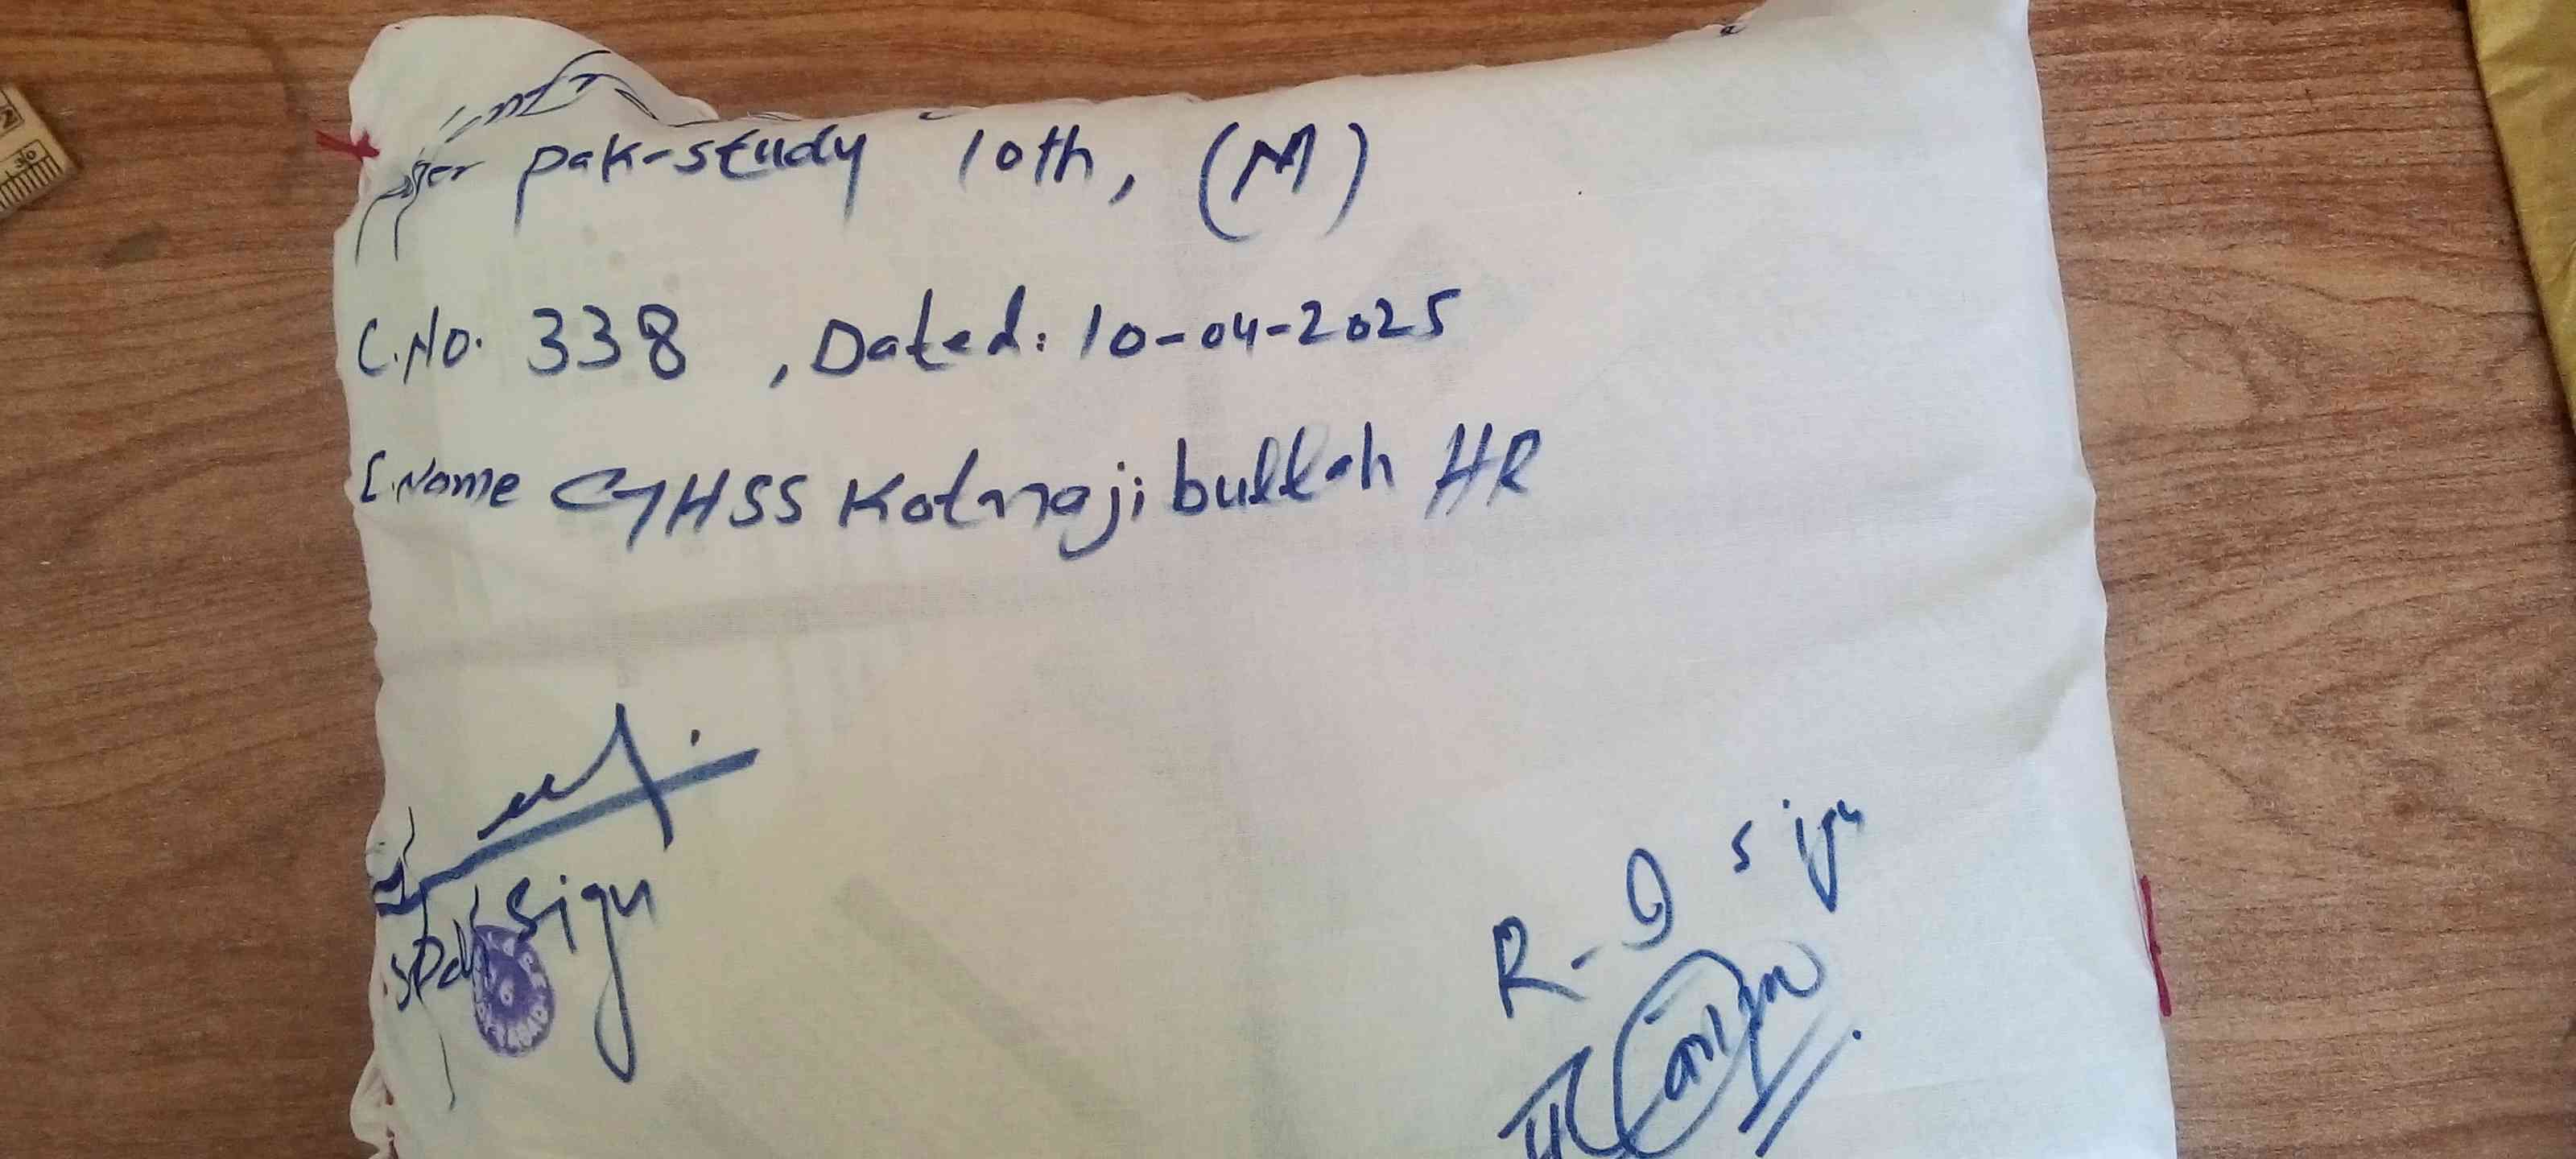 pak-study 10th, (M)
C.No. 338 , Dated: 10-04-2025
C.Name GHSS Kotnajibullah HR
Sign
R-I sign